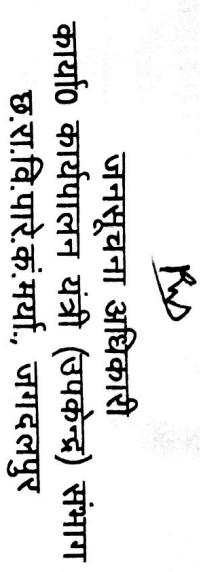 जनसूचना अधिकारी
कार्या0 कार्यपालन यंत्री (उपकेन्द्र) संभाग
छ.रा.वि.पारे.कं.मर्या., जगदलपुर